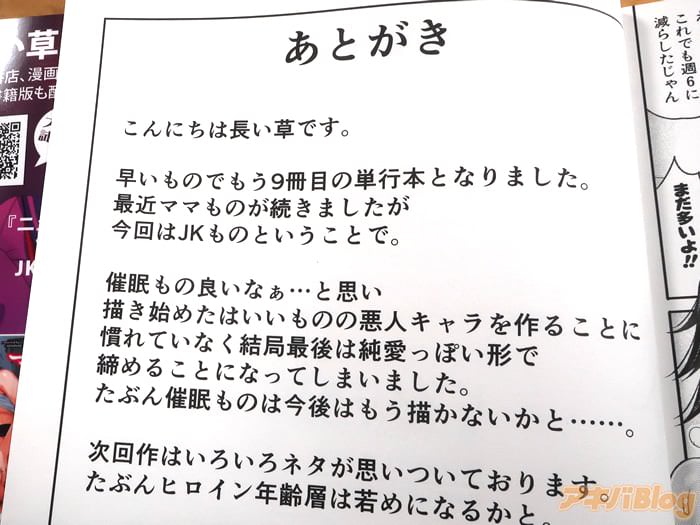 あとがき
こんにちは長い草です。
早いものでもう9冊目の単行本となりました。
最近ママものが続きましたが
今回はJKものということで。
催眠もの良いなぁ…と思い
描き始めたはいいものの悪人キャラを作ることに
慣れていなく結局最後は純愛っぽい形で
締めることになってしまいました。
たぶん催眠ものは今後はもう描かないかと……。
次回作はいろいろネタが思いついております。
たぶんヒロイン年齢層は若めになるかと。
これでも週6に
減らしたじゃん
まだ多いよ!!
い草
店、漫画
書籍版も
『ニ
JK
アキバBlog